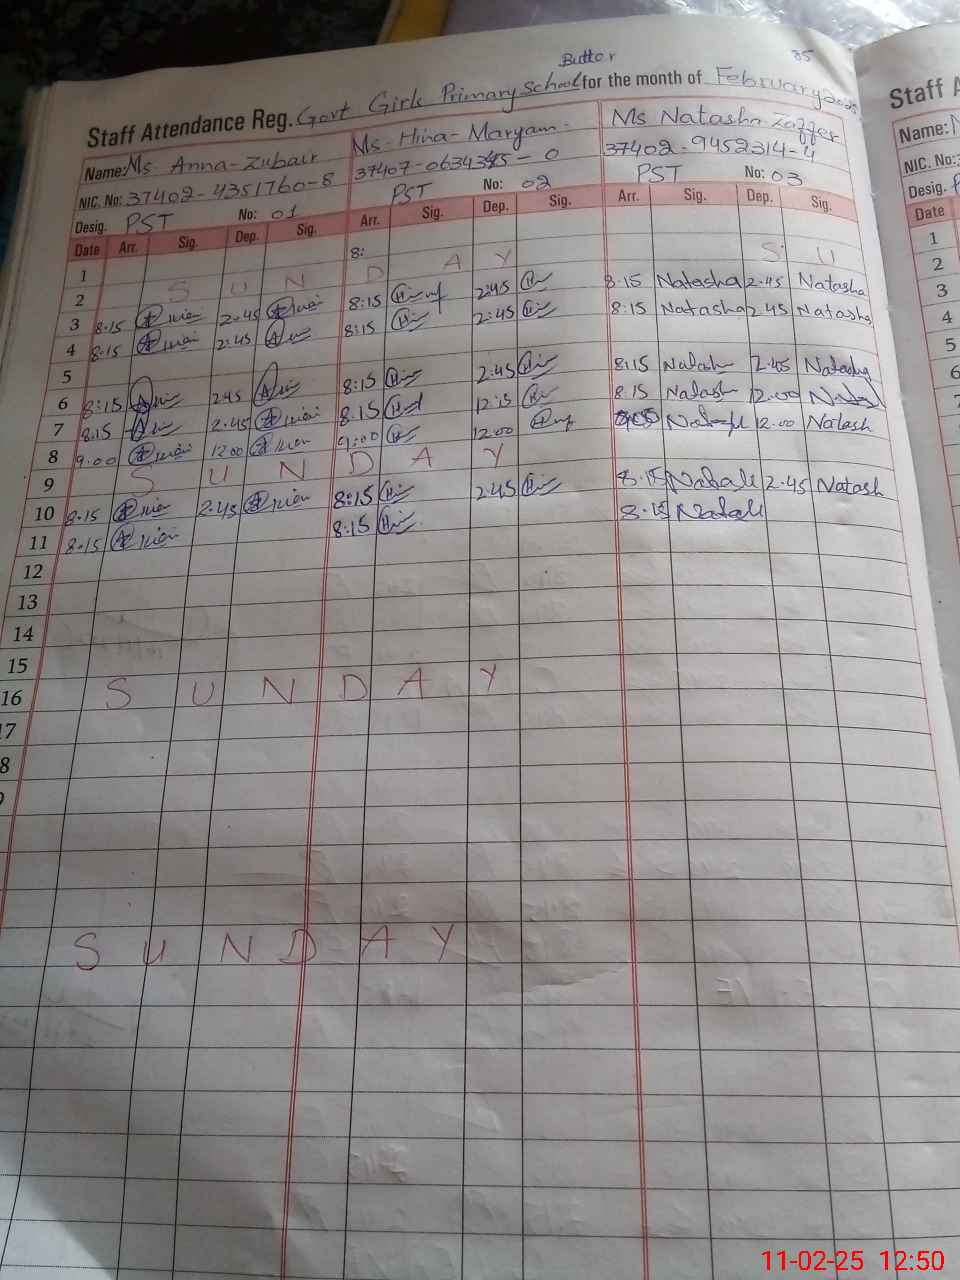 Buttor 35
Staff Attendance Reg. Govt Girls Primary School for the month of February 2025
Name: Ms. Anna-Zubair Ms-Hina-Maryam- Ms Natasha Zaffer
NIC. No: 37402-4351760-8 37402-9452314-4
Desig. PST No: 01 PST No: 02 PST No: 03
Date Arr. Sig. Dep. Sig. Arr. Sig. Dep. Sig. Arr. Sig. Dep. Sig.
1 8:
2 S U N D A Y S U
3 8.15 2.45 8:15 2:45 8.15 Natasha 2.45 Natasha
4 8.15 2:45 8:15 2:45 8.15 Natasha 2.45 Natasha
5
6 8:15 2.45 8:15 2:45 8:15 Natash 2.45 Natasha
7 8.15 2.45 8.15 12:15 8.15 Natash 12.00
8 9.00 12.00 9:00 12.00 12.00 Natash
9 S U N D A Y
10 8.15 2.45 8:15 2.45 8.15 2.45 Natash
11 8.15 8.15 8.15
12
13
14
15
16 S U N D A Y
17
8
9
S U N D A Y
Staff A
Name:
NIC. No:
Desig.
Date
1
2
3
4
5
6
7
8
9
10
11
12
13
11-02-25 12:50